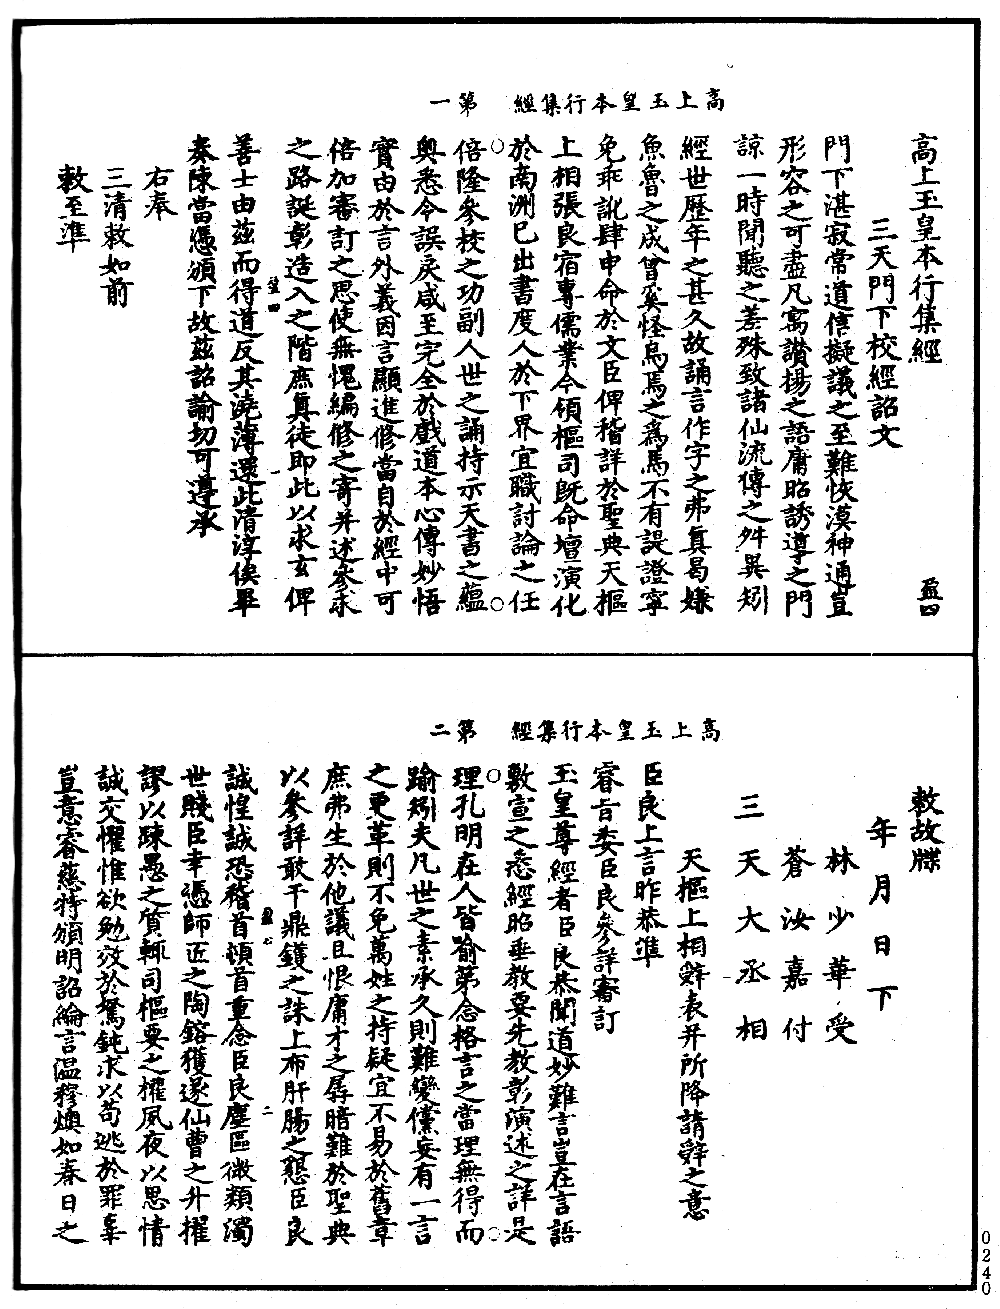 高上玉皇本行集經　第一
高上玉皇本行集經　盈四
三天門下校經詔文
門下湛寂常道信擬議之至難恢漠神通豈
形容之可盡凡寓讚揚之語庸昭誘導之門
諒一時聞聽之差殊致諸仙流傳之舛異矧
經世歷年之甚久故誦言作字之弗真曷嫌
魚魯之成曾奚怪烏焉之為馬不有諟證寧
免乖訛肆申命於文臣俾稽詳於聖典天樞
上相張良宿專儒業今領樞司既命壇演化
於南洲已出書度人於下界宜職討論之任
倍隆參校之功副人世之誦持示天書之蘊
奧悉令誤戾咸至完全於戲道本心傳妙悟
實由於言外義因言顯進修當自於經中可
倍加審訂之思使無愧編修之寄并述參求
之路誕彰造入之階庶真徒即此以求玄俾
盈四
善士由茲而得道反其澆薄還此清淳俟畢
奏陳當憑頒下故茲詔諭切可遵承
右奉
三清敕如前
敕至準
高上玉皇本行集經　第二
敕故牒
年月日下
林少華受
蒼汝嘉付
三天大丞相
天樞上相辭表并所降請辭之意
臣良上言昨恭準
睿旨委臣良參詳審訂
玉皇尊經者臣良恭聞道妙難言豈在言語
敷宣之悉經昭垂教要先教彰演述之詳是
理孔明在人皆喻第念格言之當理無得而
踰矧夫凡世之素承久則難變儻妄有一言
之更革則不免萬姓之持疑宜不易於舊章
庶弗生於他議且恨庸才之孱暗難於聖典
以參詳敢干鼎鑊之誅上布肝腸之懇臣良
二
誠惶誠恐稽首頓首重念臣良塵區微類濁
世賤臣幸憑師匠之陶鎔獲逐仙曹之升擢
謬以疎愚之質輒司樞要之權夙夜以思情
誠交懼惟欲勉效於駑鈍求以苟逃於罪辜
豈意睿慈特頒明詔綸言溫穆燠如春日之
0240